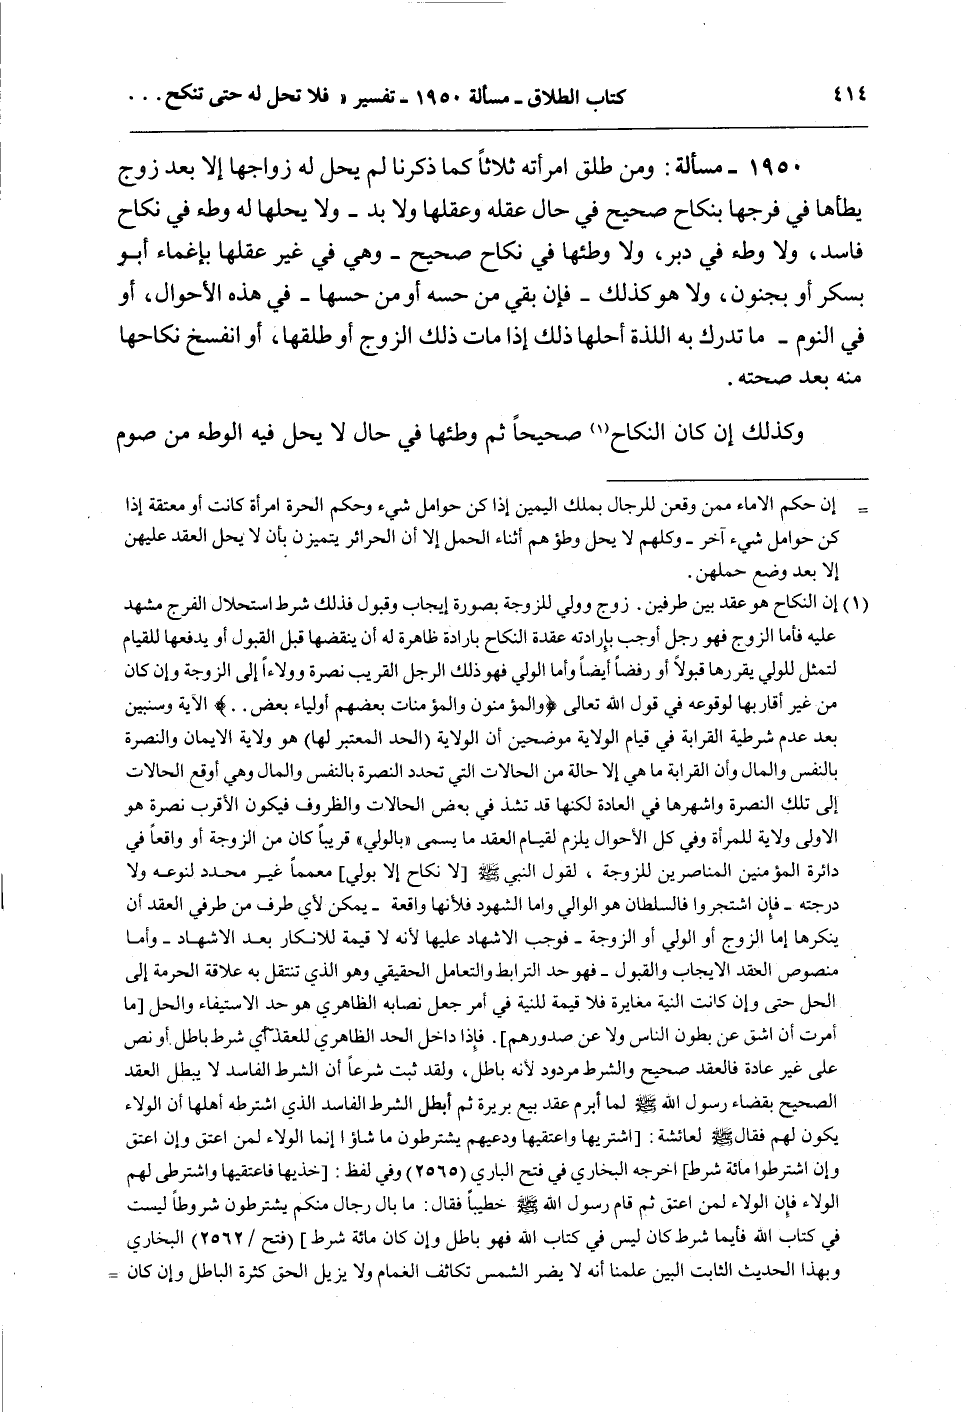 ٤١٤ كتاب الطلاق ـ مسألة ١٩٥٠ ـ تفسير « فلا تحل له حتى تنكح ...
١٩٥٠ ـ مسألة : ومن طلق امرأته ثلاثاً كما ذكرنا لم يحل له زواجها إلا بعد زوج
يطأها في فرجها بنكاح صحيح في حال عقله وعقلها ولا بد ـ ولا يحلها له وطء في نكاح
فاسد، ولا وطء في دبر، ولا وطئها في نكاح صحيح ـ وهي في غير عقلها بإغماء أبو
بسكر أو بجنون، ولا هو كذلك ـ فإن بقي من حسه أو من حسها ـ في هذه الأحوال، أو
في النوم ـ ما تدرك به اللذة أحلها ذلك إذا مات ذلك الزوج أو طلقها، أو انفسخ نكاحها
منه بعد صحته .
وكذلك إن كان النكاح(١) صحيحاً ثم وطئها في حال لا يحل فيه الوطء من صوم
= إن حكم الاماء ممن وقعن للرجال بملك اليمين إذا كن حوامل شيء وحكم الحرة امرأة كانت أو معتقة إذا
كن حوامل شيء آخر ـ وكلهم لا يحل وطؤ هم أثناء الحمل إلا أن الحرائر يتميزن بأن لا يحل العقد عليهن
إلا بعد وضع حملهن .
(١) إن النكاح هو عقد بين طرفين . زوج وولي للزوجة بصورة إيجاب وقبول فذلك شرط استحلال الفرج مشهد
عليه فأما الزوج فهو رجل أوجب بإرادته عقدة النكاح بارادة ظاهرة له أن ينقضها قبل القبول أو يدفعها للقيام
لتمثل للولي يقررها قبولاً أو رفضاً أيضاً وأما الولي فهو ذلك الرجل القريب نصرة وولاءاً إلى الزوجة وإن كان
من غير أقاربها لوقوعه في قول الله تعالى ﴿والمؤ منون والمؤ منات بعضهم أولياء بعض . . ﴾ الآية وسنبين
بعد عدم شرطية القرابة في قيام الولاية موضحين أن الولاية (الحد المعتبر لها) هو ولاية الايمان والنصرة
بالنفس والمال وأن القرابة ما هي إلا حالة من الحالات التي تحدد النصرة بالنفس والمال وهي أوقع الحالات
إلى تلك النصرة واشهرها في العادة لكنها قد تشذ في بعض الحالات والظروف فيكون الأقرب نصرة هو
الاولى ولاية للمرأة وفي كل الأحوال يلزم لقيام العقد ما يسمى «بالولي» قريباً كان من الزوجة أو واقعاً في
دائرة المؤ منين المناصرين للزوجة ، لقول النبي ﷺ [لا نكاح إلا بولي] معمماً غير محدد لنوعه ولا
درجته ـ فإن اشتجروا فالسلطان هو الوالي واما الشهود فلأنها واقعة ـ يمكن لأي طرف من طرفي العقد أن
ينكرها إما الزوج أو الولي أو الزوجة ـ فوجب الاشهاد عليها لأنه لا قيمة للانكار بعد الاشهاد ـ وأما
منصوص العقد الايجاب والقبول ـ فهو حد الترابط والتعامل الحقيقي وهو الذي تنتقل به علاقة الحرمة إلى
الحل حتى وإن كانت النية مغايرة فلا قيمة للنية في أمر جعل نصابه الظاهري هو حد الاستيفاء والحل [ما
أمرت أن اشق عن بطون الناس ولا عن صدورهم] . فإذا داخل الحد الظاهري للعقد أي شرط باطل أو نص
على غير عادة فالعقد صحيح والشرط مردود لأنه باطل، ولقد ثبت شرعاً أن الشرط الفاسد لا يبطل العقد
الصحيح بقضاء رسول الله ﷺ لما أبرم عقد بيع بريرة ثم أبطل الشرط الفاسد الذي اشترطه أهلها أن الولاء
يكون لهم فقال ﷺ لعائشة : [اشتريها واعتقيها ودعيهم يشترطون ما شاؤ ا إنما الولاء لمن اعتق وإن اعتق
وإن اشترطوا مائة شرط] اخرجه البخاري في فتح الباري (٢٥٦٥) وفي لفظ : [خذيها فاعتقيها واشترطي لهم
الولاء فإن الولاء لمن اعتق ثم قام رسول الله ﷺ خطيباً فقال : ما بال رجال منكم يشترطون شروطاً ليست
في كتاب الله فأيما شرط كان ليس في كتاب الله فهو باطل وإن كان مائة شرط ] (فتح / ٢٥٦٢) البخاري
وبهذا الحديث الثابت البين علمنا أنه لا يضر الشمس تكاثف الغمام ولا يزيل الحق كثرة الباطل وإن كان =